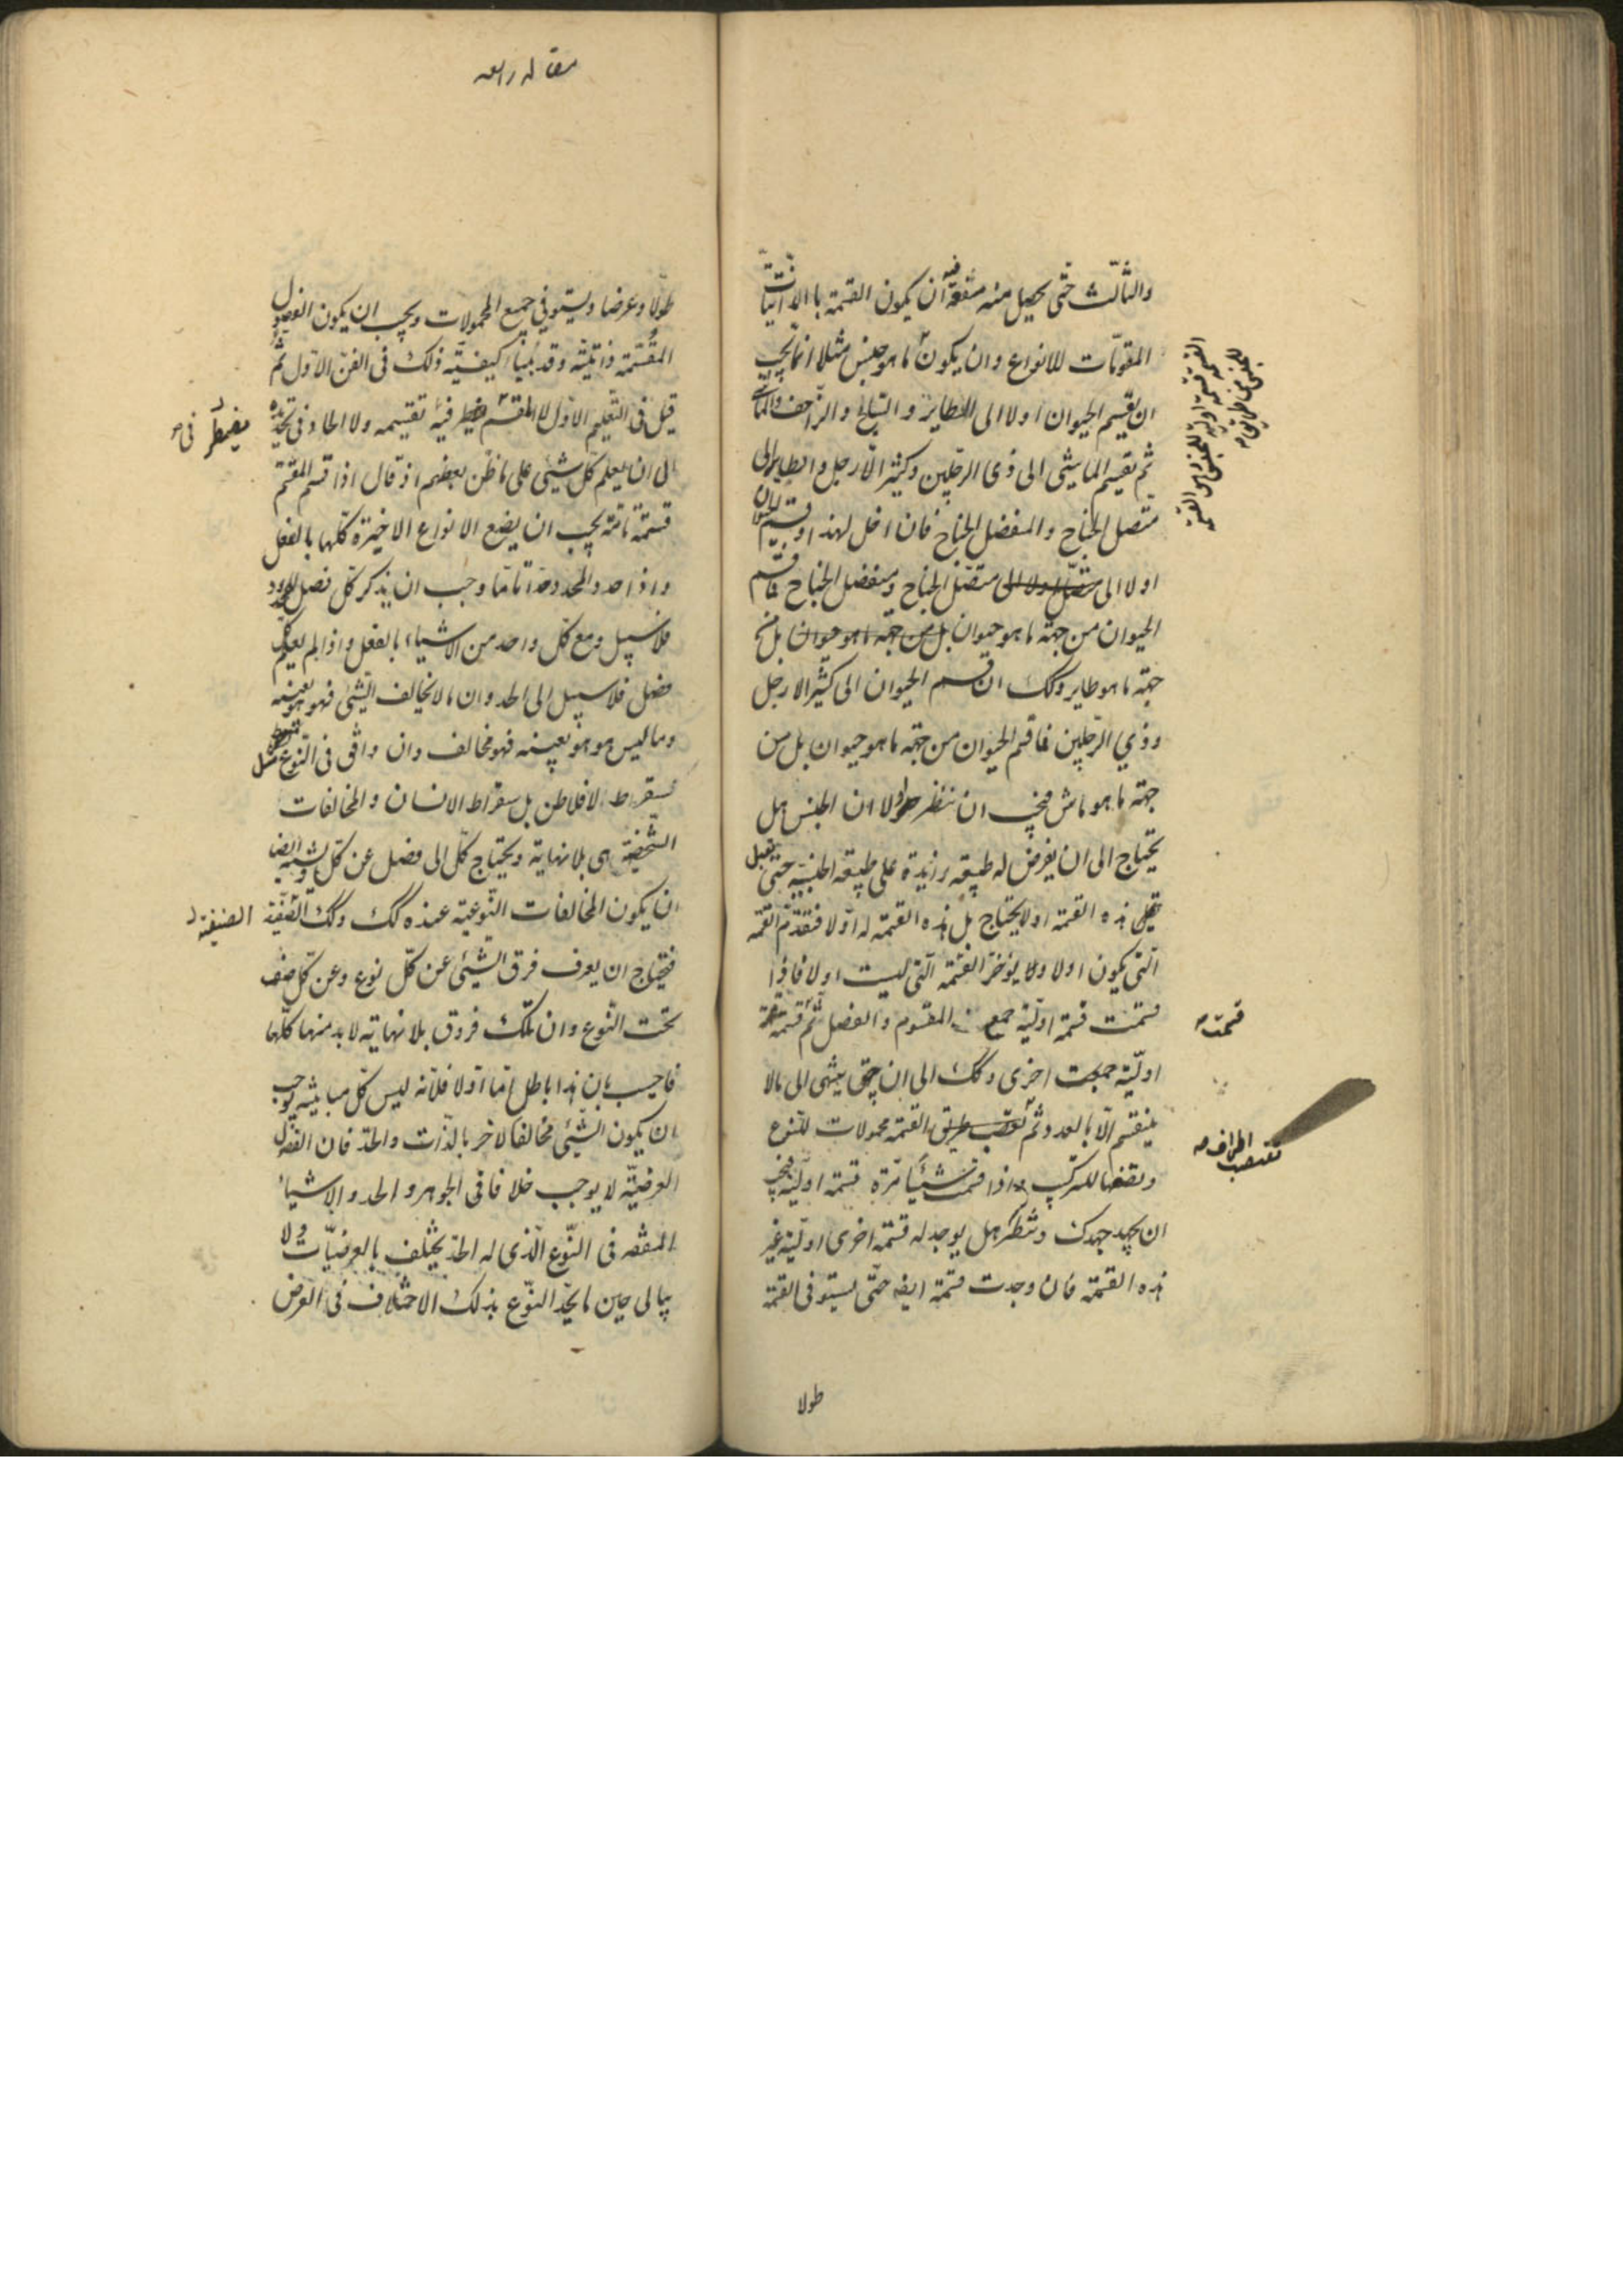 والثالث حتى يحصل منه منفعة فيه ان يكون القسمة بالذاتيات
المقومات للانواع وان يكون لما هو جنس مثلا انما يجب
ان يقسم الحيوان اولا الى الطاير و السابح و الزاحف والماشى
ثم يقسم الماشى الى ذى الرجلين وكثير الارجل والطاير الى
متصل الجناح والمنفصل الجناح فان اخل لهذا او قسم الحيوان
اولا الى متصل الجناح ومنفصل الجناح فما قسم
الحيوان من جهة ما هو حيوان بل من جهة ما هو حيوان بل من
جهة ما هو طاير وكك ان قسم الحيوان الى كثير الارجل
وذي الرجلين فما قسم الحيوان من جهة ما هو حيوان بل من
جهة ما هو ماش فيجب ان تنظر اولا ان الجنس هل
يحتاج الى ان يفرض له طبيعة زايدة على طبيعة الجنسية حتى يقبل
هذه القسمة او لا يحتاج بل هذه القسمة له اولا فتقدم القسمة
التى يكون اولا ولا يؤخر القسمة التى ليست اولا فاذا
قسمت قسمة اولية جمع المقسوم والفصل ثم قسمته قسمة
اولية جمعت اخرى وكك الى ان حتى ينتهى الى ما لا
ينقسم الا بالعدد وثم طريق القسمة محمولات للنوع
ونقضها للتركيب واذا قسمت شيئا مرة قسمة اولية فيجب
ان يجهد جهدك وتنظر هل يوجد له قسمة اخرى اولية غير
هذه القسمة فان وجدت قسمة ايضه حتى يستوفى القسمة
طولا
القسمة قسمة اولية للجنس
قسمت
تقتضب اطراف
مقاله رابعه
طولا وعرضا ويستوفي جميع المحمولات ويجب ان يكون الفصول
المقسمة ذاتية وقد بينا كيفية ذلك فى الفن الاول ثم
قيل فى التعليم الاول لا المقسم فيه تقسيمه ولا الحاد فى تحديده
الى ان يعلم كل شيئ على ما ظن بعضهم اذ قال اذا قسم المقسم
قسمة تامة يجب ان يضع الانواع الاخيرة كلها بالفعل
واذا حد المحدود حدا تاما وجب ان يذكر كل فصل للمحدود
فلا سبيل ومع كل واحد من الاشياء بالفعل واذا لم يعلم كل
فصل فلا سبيل الى الحد وان ما لا يخالف الشيئ فهو هو بعينه
وما ليس هو هو بعينه فهو مخالف وان وافق فى النوع مثل
سقراط لافلاطن بل سقراط الانسان والمخالفات
الشخصية هى بلا نهاية ويحتاج كل الى فصل عن كل ايضا
ان يكون المخالفات النوعية عنده كك وكك الصنفية
فيحتاج ان يعرف فرق الشيئ عن كل نوع وعن كل صنف
تحت النوع وان تلك فروق بلا نهاية لا بد منها كلها
فاجيب بان هذا باطل اما اولا فلانه ليس كل مباينة يوجب
ان يكون الشيئ مخالفا لاخر بالذات والحد فان الفصول
العرضية لا يوجب خلافا فى الجوهر والحد والاشياء
المتفقه فى النوع الذى له الحد يختلف بالعرضيات ولا
يبالى حين ما يحد النوع بذلك الاختلاف فى العرض
مضطر فى
الصنفية